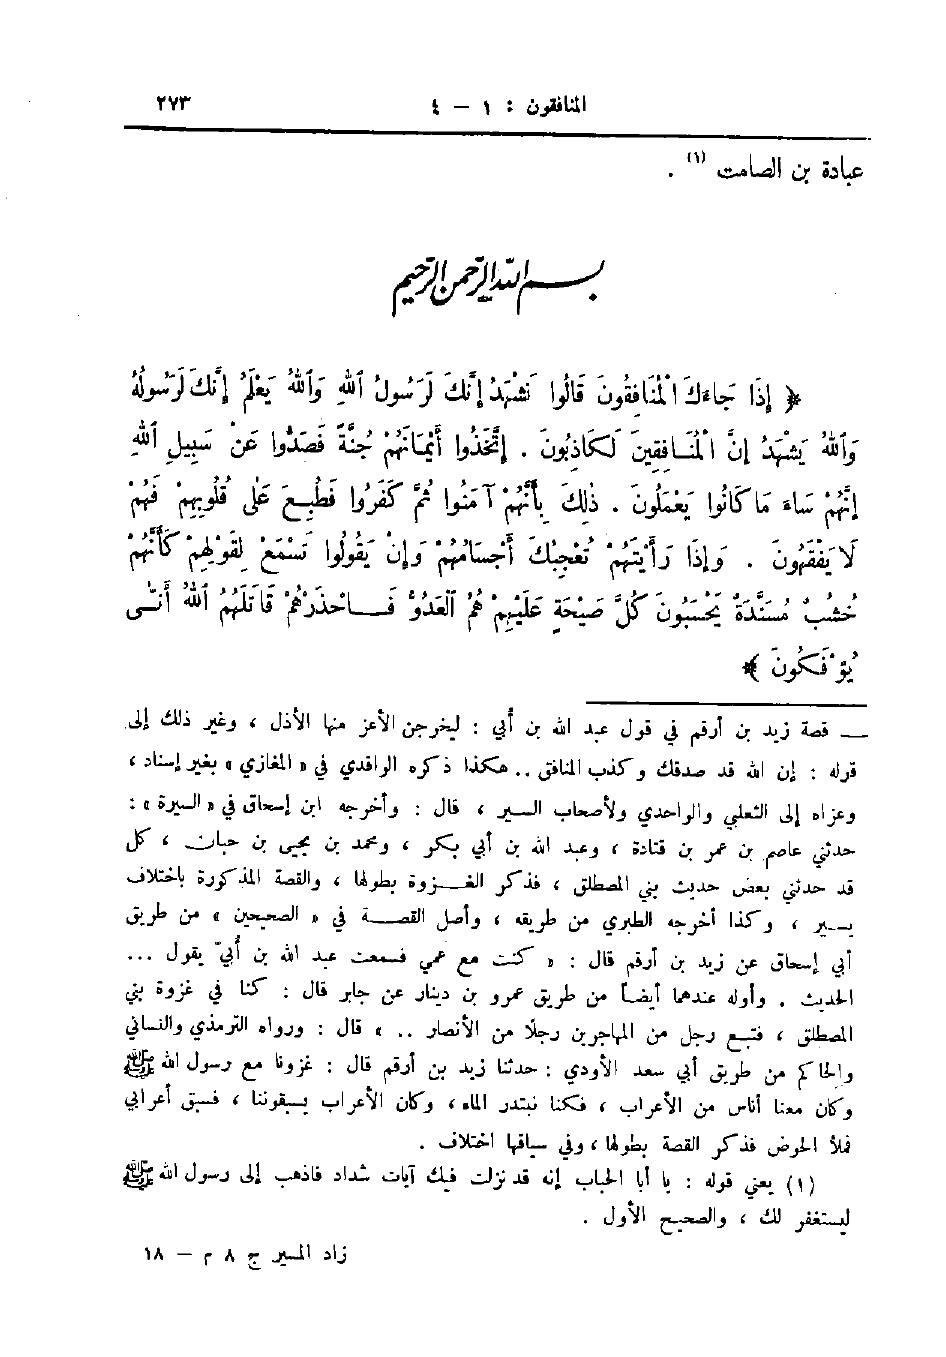 المنافقون : ١ – ٤ ٢٧٣
عبادة بن الصامت (١) .
بسم الله الرحمن الرحيم
﴿ إِذَا جَاءَكَ الْمُنَافِقُونَ قَالُوا نَشْهَدُ إِنَّكَ لَرَسُولُ اللهِ وَاللهُ يَعْلَمُ إِنَّكَ لَرَسُولُهُ
وَاللهُ يَشْهَدُ إِنَّ الْمُنَافِقِينَ لَكَاذِبُونَ . إِتَّخَذُوا أَيْمَانَهُمْ جُنَّةً فَصَدُّوا عَنْ سَبِيلِ اللهِ
إِنَّهُمْ سَاءَ مَا كَانُوا يَعْمَلُونَ . ذٰلِكَ بِأَنَّهُمْ آمَنُوا ثُمَّ كَفَرُوا فَطُبِعَ عَلَى قُلُوبِهِمْ فَهُمْ
لَا يَفْقَهُونَ . وَإِذَا رَأَيْتَهُمْ تُعْجِبُكَ أَجْسَامُهُمْ وَإِنْ يَقُولُوا تَسْمَعْ لِقَوْلِهِمْ كَأَنَّهُمْ
خُشُبٌ مُسَنَّدَةٌ يَحْسَبُونَ كُلَّ صَيْحَةٍ عَلَيْهِمْ هُمُ الْعَدُوُّ فَاحْذَرْهُمْ قَاتَلَهُمُ اللهُ أَنَّى
يُؤْفَكُونَ ﴾
— قصة زيد بن أرقم في قول عبد الله بن أُبي : ليخرجن الأعز منها الأذل ، وغير ذلك إلى
قوله : إن الله قد صدقك وكذب المنافق .. هكذا ذكره الواقدي في « المغازي » بغير إسناد ،
وعزاه إلى الثعلبي والواحدي ولأصحاب السير ، قال : وأخرجه ابن إسحاق في « السيرة » :
حدثني عاصم بن عمر بن قتادة ، وعبد الله بن أبي بكر ، ومحمد بن يحيى بن حبان ، كل
قد حدثني بعض حديث بني المصطلق ، فذكر الغزوة بطولها ، والقصة المذكورة باختلاف
يسير ، وكذا أخرجه الطبري من طريقه ، وأصل القصة في « الصحيحين » من طريق
أبي إسحاق عن زيد بن أرقم قال : « كنت مع عمي فسمعت عبد الله بن أُبيّ يقول ...
الحديث . وأوله عندهما أيضاً من طريق عمرو بن دينار عن جابر قال : كنا في غزوة بني
المصطلق ، فتبع رجل من المهاجرين رجلًا من الأنصار .. » قال : ورواه الترمذي والنسائي
والحاكم من طريق أبي سعد الأودي : حدثنا زيد بن أرقم قال : غزونا مع رسول الله ﷺ
وكان معنا أناس من الأعراب ، فكنا نبتدر الماء ، وكان الأعراب يسبقوننا ، فسبق أعرابي
فملأ الحوض فذكر القصة بطولها ، وفي سياقها اختلاف .
(١) يعني قوله : يا أبا الحباب إنه قد نزلت فيك آيات شداد فاذهب إلى رسول الله ﷺ
ليستغفر لك ، والصحيح الأول .
زاد المسير ج ٨ م – ١٨